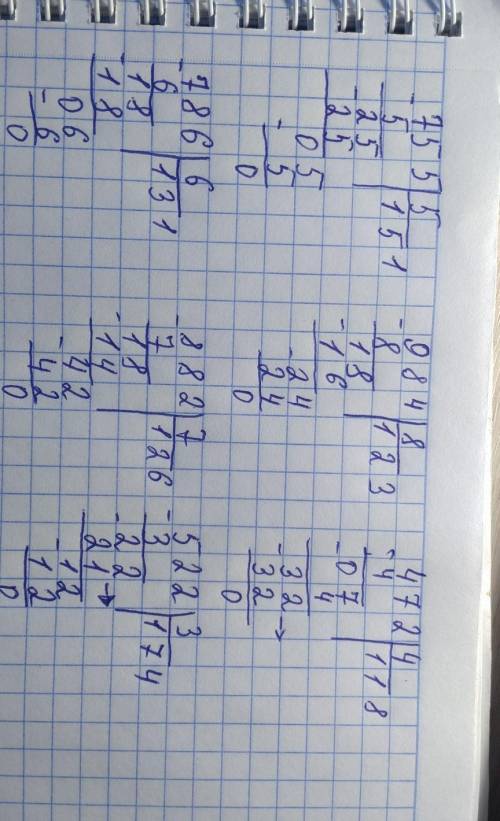 -755|5
5 151
-25
25
-05
5
0
-984|8
8 123
-18
16
-24
24
0
-472|4
4 118
-07
4
-32→
32
0
-786|6
6 131
-18
18
-06
6
0
-882|7
7 126
-18
14
-42
42
0
-522|3
3 174
-22
21→
-12
12
0